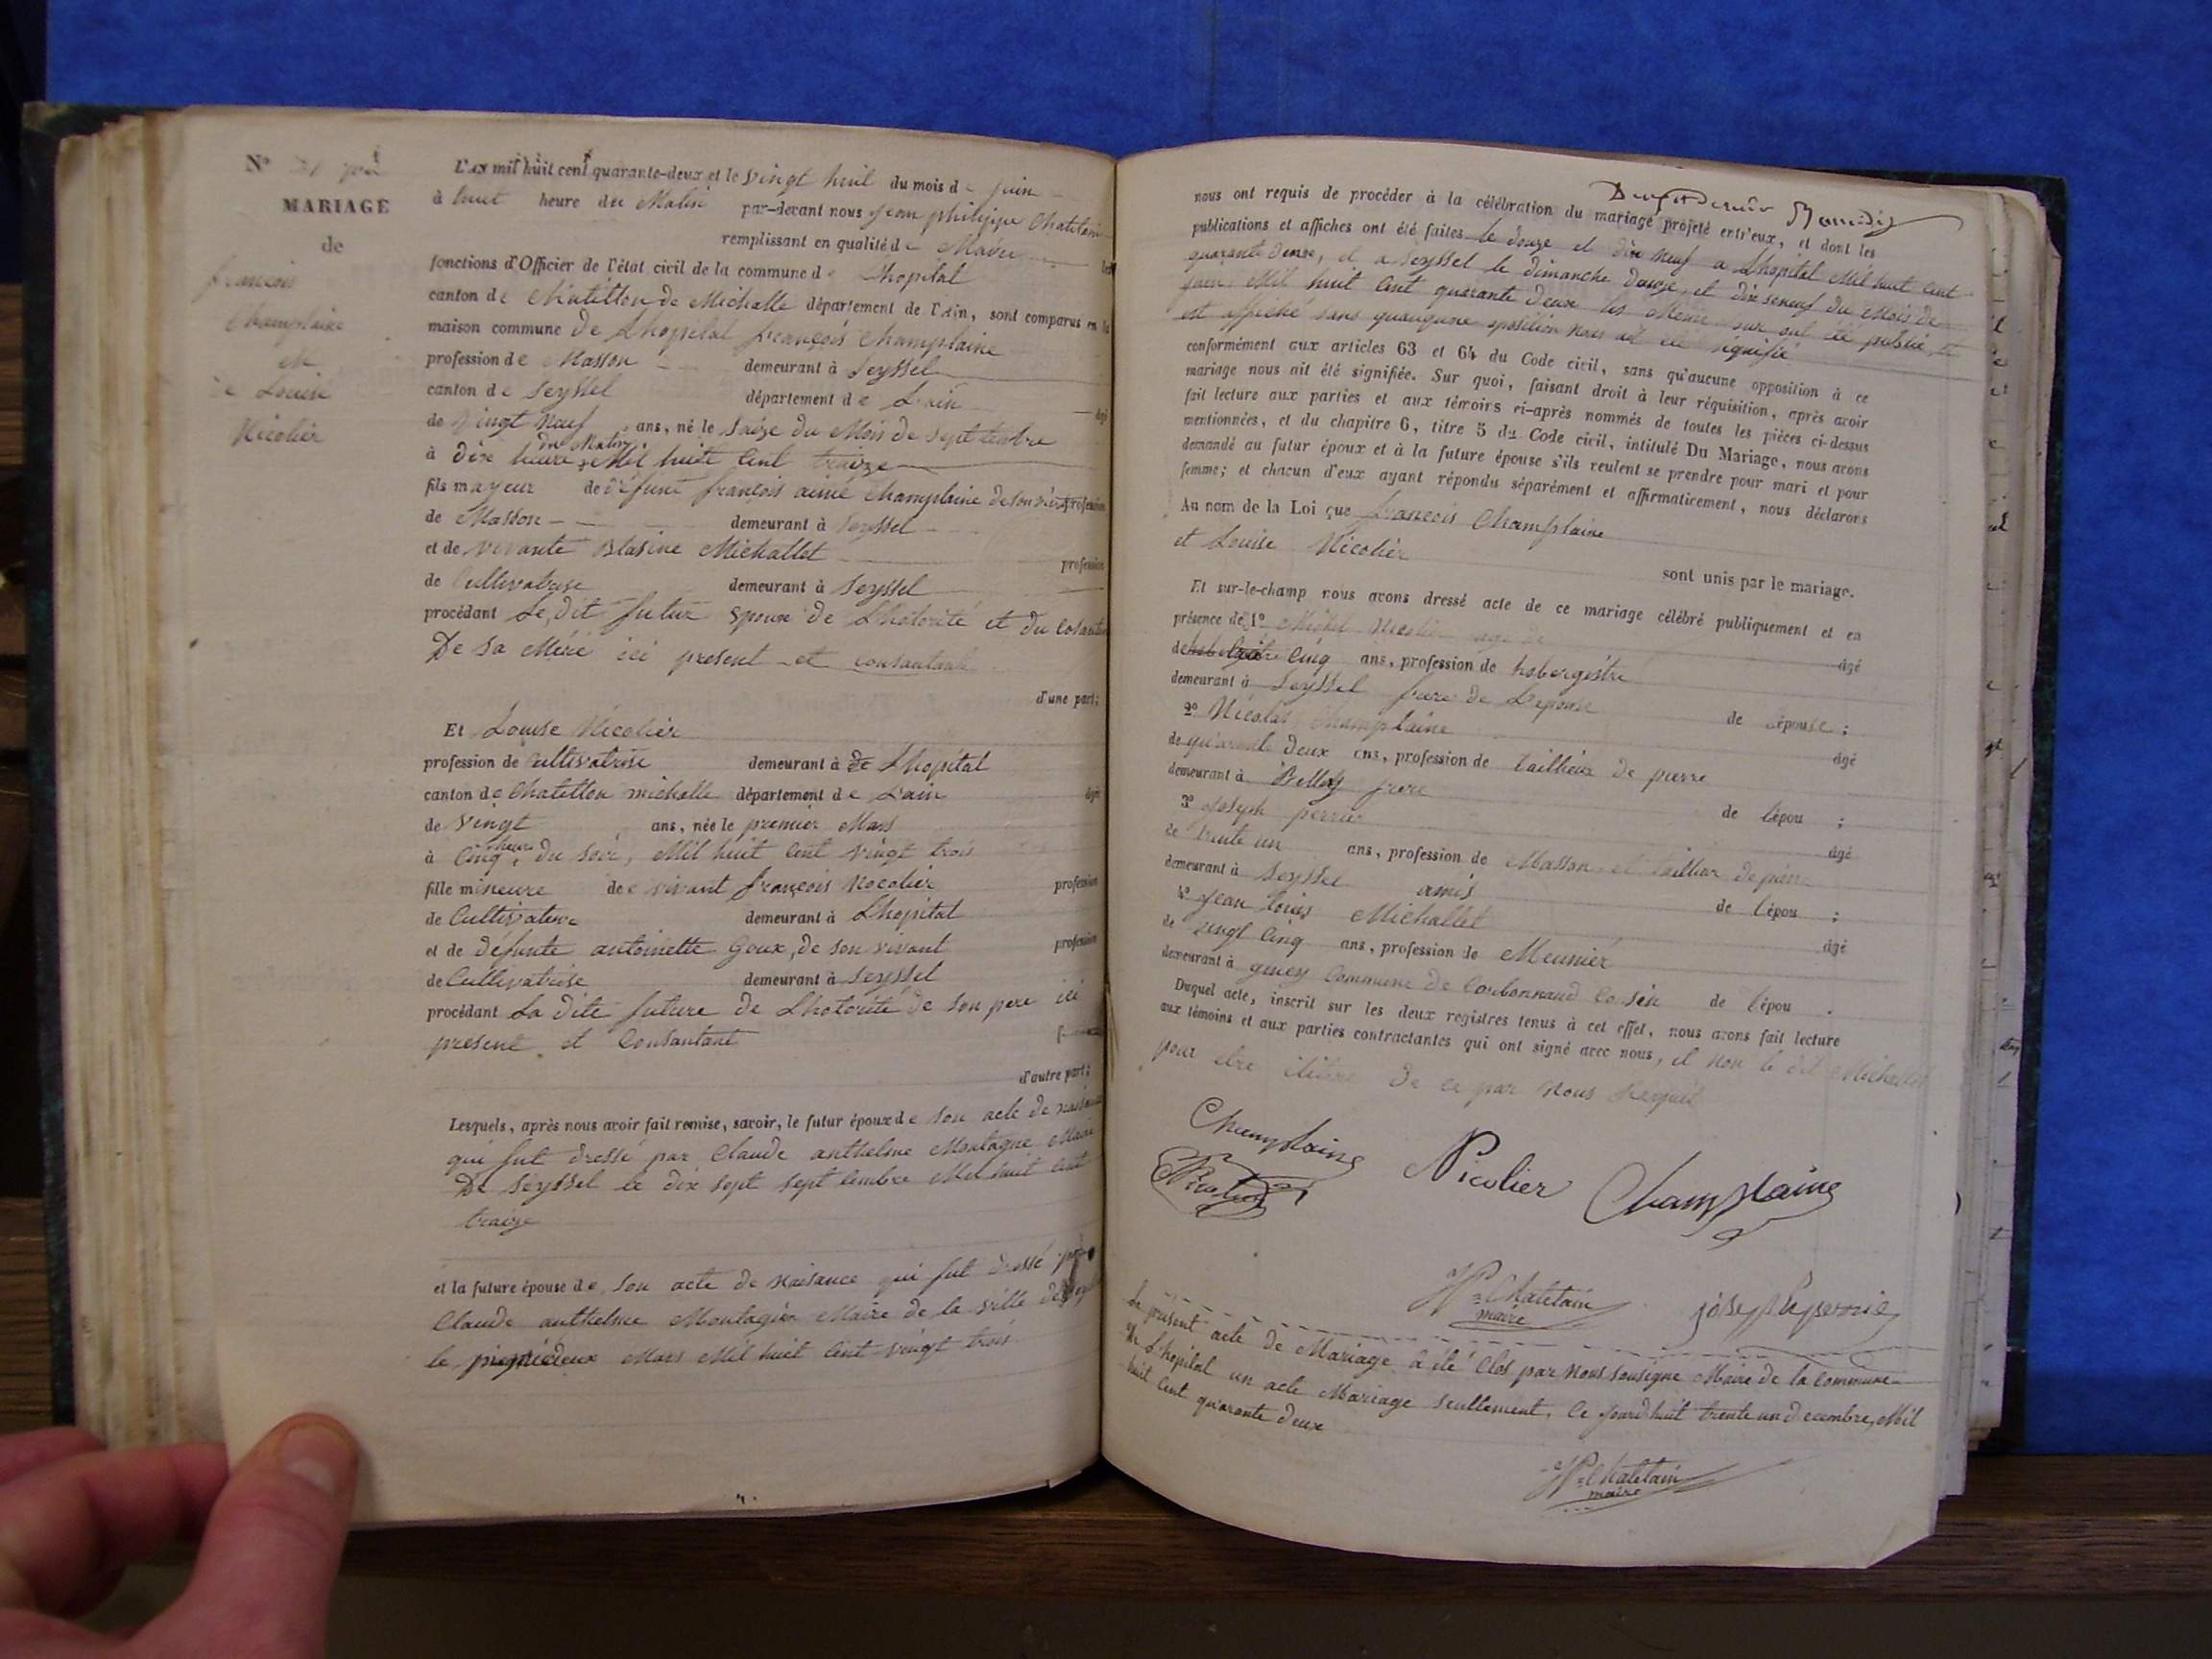 N°
MARIAGE
de
françois
Champlaine
et
de Louise
Nicolier
L'AN mil huit cent quarante-deux et le vingt huit du mois de juin
à huit heure du Matin par-devant nous Jean philippe Chatelain
remplissant en qualité de Maire les
fonctions d'Officier de l'état civil de la commune de Lhopital
canton de Chatillon de Michalle département de l'Ain, sont comparus en la
maison commune de Lhopital françois Champlaine
profession de Masson demeurant à Seyssel
canton de Seyssel département de Lain âgé
de vingt neuf ans, né le saize du Mois de septembre
à dix heure du Matin Mil huit Cent traize
fils mayeur de défunt françois aimé Champlaine de son vivant profession
de Masson demeurant à Seyssel
et de vivante Blasine Michallet profession
de Cultivatrise demeurant à Seyssel
procédant Le dit futur Epoux de Lhotorité et du
De sa Mère ici present et consantante
d'une part;
Et Louise Nicolier
profession de Cultivatrise demeurant à de Lhopital
canton de Chatillon michalle département de Lain âgé
de vingt ans, née le premier Mars
à Cinq heure du soir, Mil huit Cent vingt trois
fille mineure de vivant françois Nocolier profession
de Cultivateur demeurant à Lhopital
et de défunte antoinette Goux, de son vivant profession
de Cultivatrise demeurant à Seyssel
procédant La dite future de Lhotorité de son pere ici
present et Consantant
d'autre part;
Lesquels, après nous avoir fait remise, savoir, le futur époux de son acte de naissance
qui fut dressé par Claude anthelme Montagne Maire
De Seyssel le dix sept septembre Mil huit Cent
traize
et la future épouse de son acte de naisance qui fut dressé par
Claude anthelme Montagne Maire de la ville de Seyssel
le Mars Mil huit Cent vingt trois
nous ont requis de procéder à la célébration du mariage projeté entr'eux, et dont les
publications et affiches ont été faites le douze et dix neuf a Lhopital Mil huit Cent
quarante deux, et a Seyssel le dimanche douze, et dix neuf du Mois de
juin Mil huit Cent quarante Deux les Meme jour ont été publié et
et affiché sans quaucune oposition nous ait été signifié
conformément aux articles 63 et 64 du Code civil, sans qu'aucune opposition à ce
mariage nous ait été signifiée. Sur quoi, faisant droit à leur réquisition, après avoir
fait lecture aux parties et aux témoins ci-après nommés de toutes les pièces ci-dessus
mentionnées, et du chapitre 6, titre 5 du Code civil, intitulé Du Mariage, nous avons
demandé au futur époux et à la future épouse s'ils veulent se prendre pour mari et pour
femme; et chacun d'eux ayant répondu séparément et affirmativement, nous déclarons
Au nom de la Loi que françois Champlaine
et Louise Nicolier
sont unis par le mariage.
Et sur-le-champ nous avons dressé acte de ce mariage célébré publiquement et en
présence de 1° Michel Nicolier agé de
de Cinq ans, profession de hobergistre âgé
demeurant à Seyssel frere de Lepouse de lépouse;
2° Nicolas Champlaine
de quarante deux ans, profession de tailleur de pierre âgé
demeurant à Belley frere de lépou ;
3° Joseph perrier
de trente un ans, profession de Masson et tailleur de pierre âgé
demeurant à Seyssel amis de lépou ;
4° Jean Louis Michallet
de vingt Cinq ans, profession de Meunier âgé
demeurant à giney Commune de Corbonnaud Cousin de lépou .
Duquel acte, inscrit sur les deux registres tenus à cet effet, nous avons fait lecture
aux témoins et aux parties contractantes qui ont signé avec nous, et non le dit Michallet
pour etre iletré De ce par Nous Requis
Champlaine
Nicolier
Nicolier
Champlaine
Chatelain
maire
Le present acte De Mariage à été Clos par Nous sousigne Maire de la Commune
de Lhopital un acte Mariage seullement, Ce jourdhuit trente un decembre, Mil
huit Cent quarante deux
Chatelain
maire